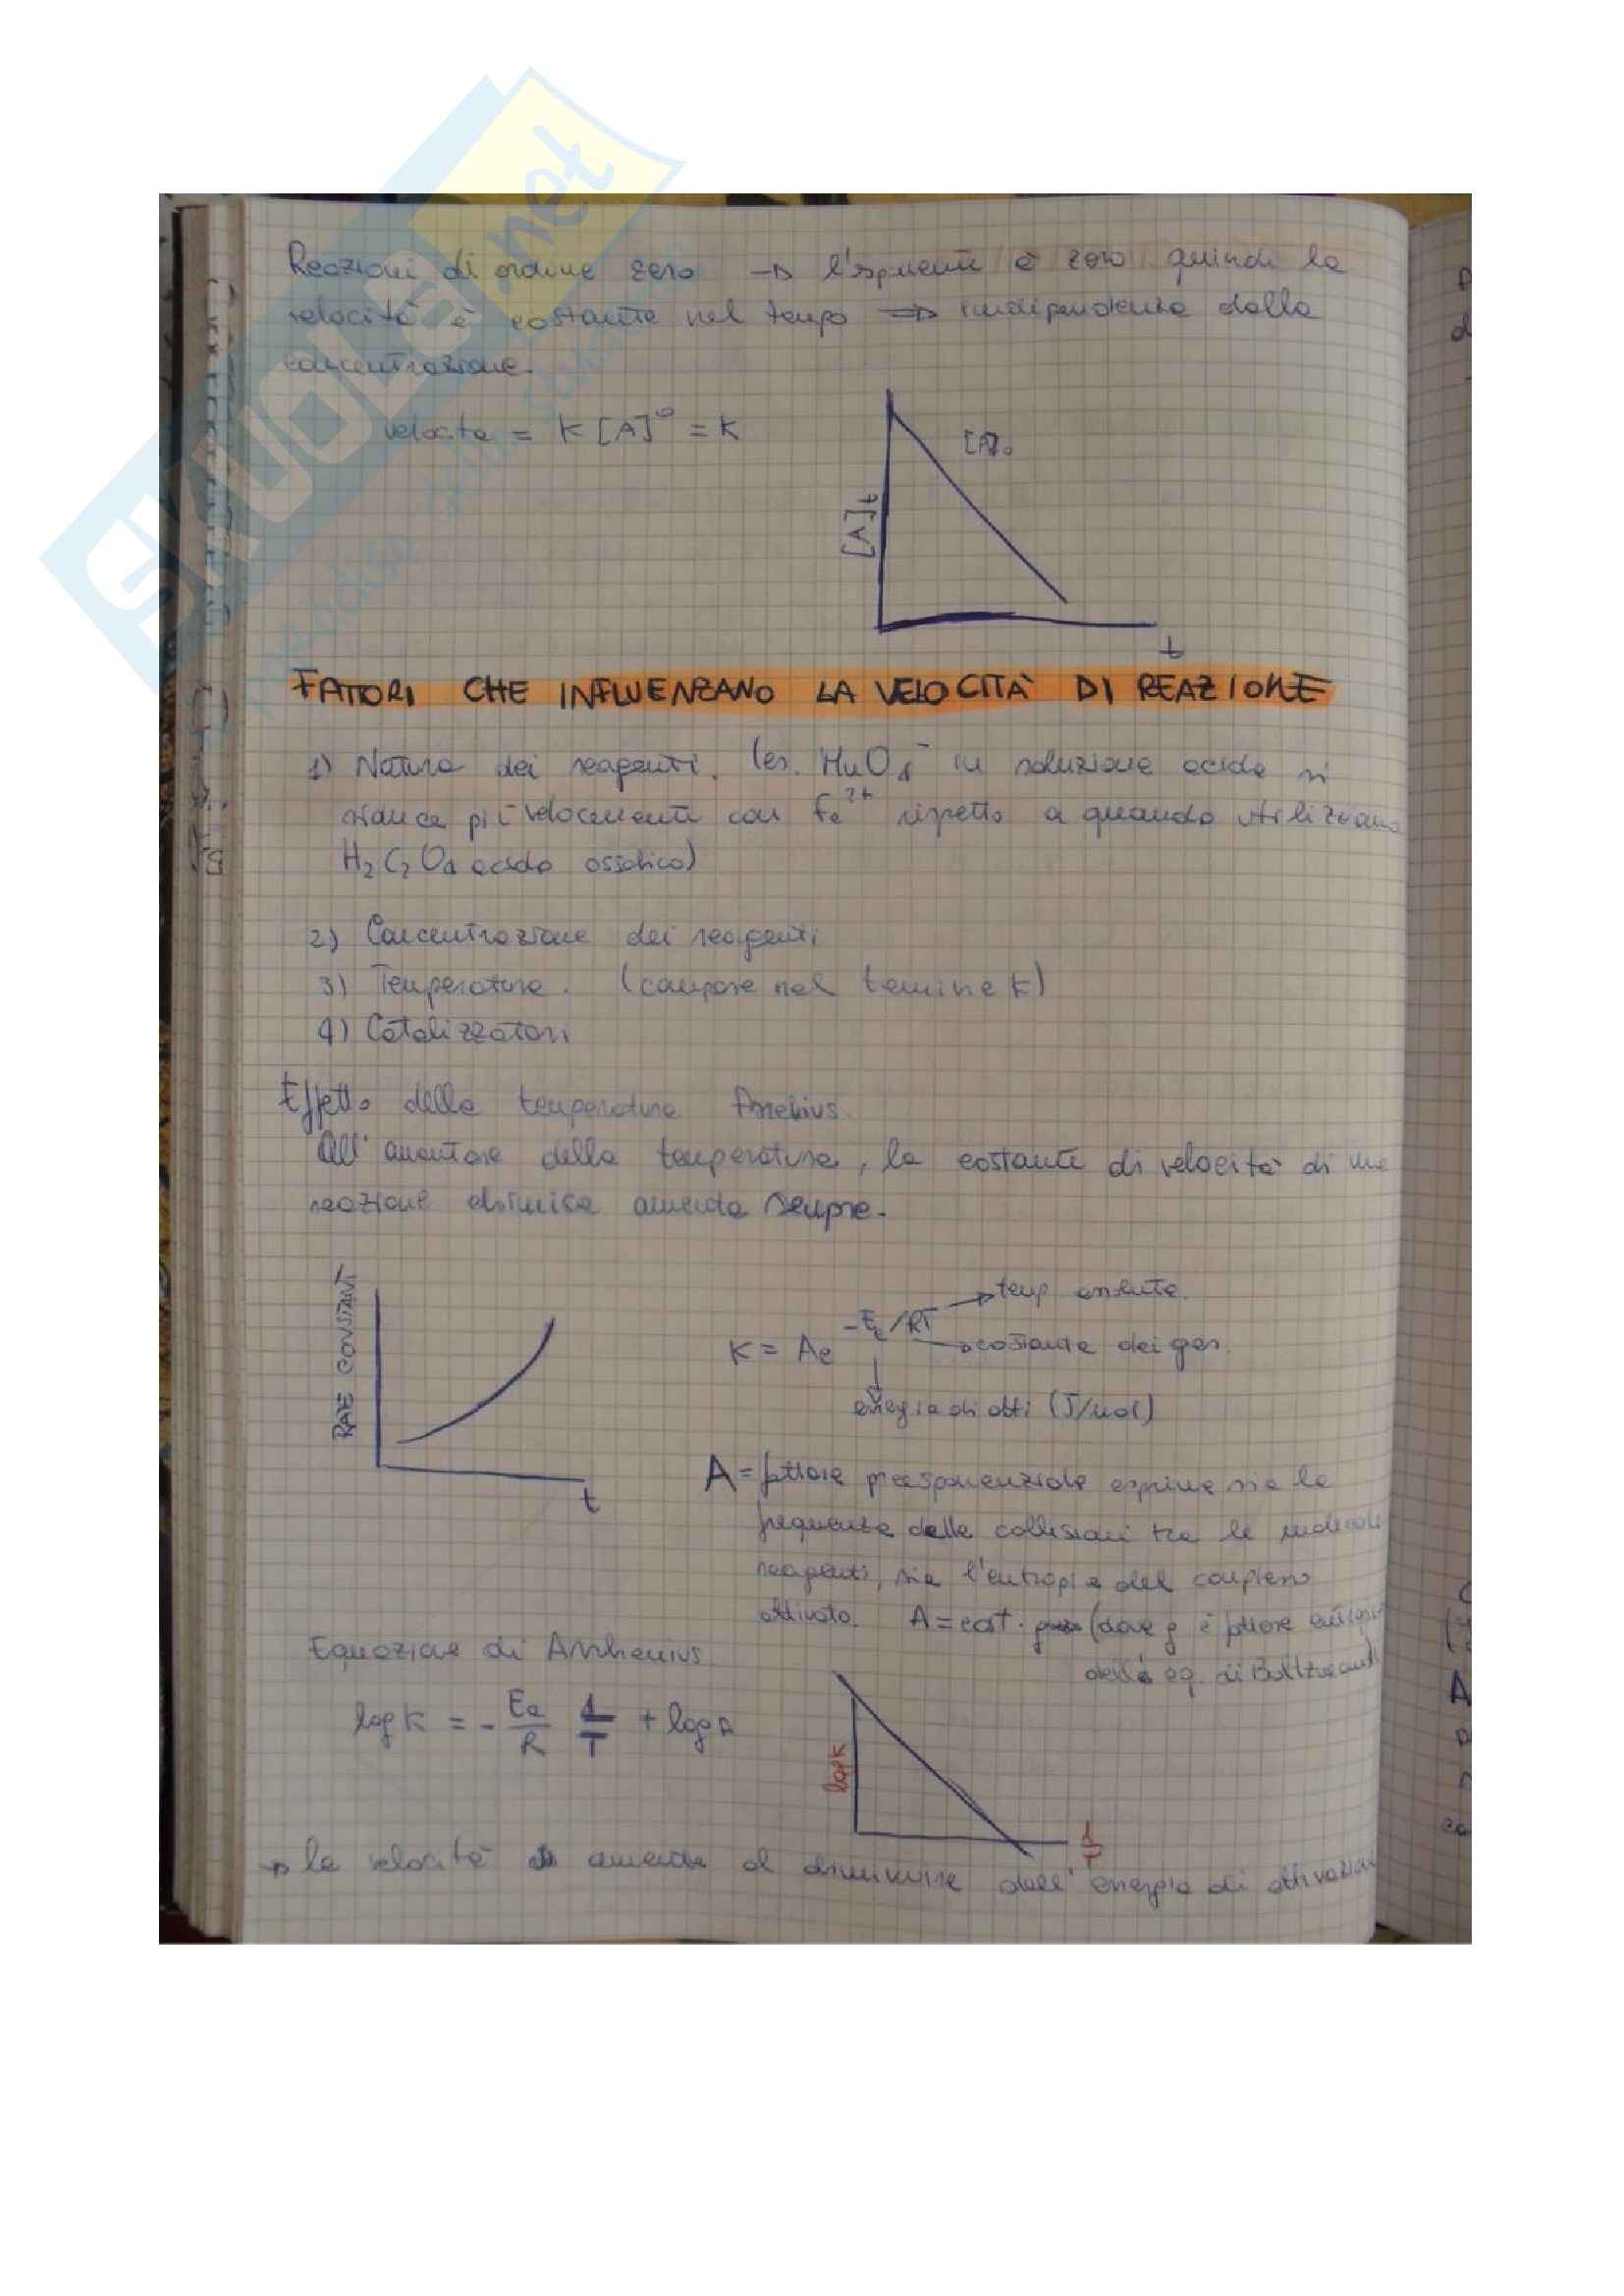 SKUOLA.net
Reazioni di ordine zero → l'esponente è zero quindi la
velocità è costante nel tempo ⇒ indipendenza dalla
concentrazione.
velocità = K [A]⁰ = K
[A]₀
[A]t
t
FATTORI CHE INFLUENZANO LA VELOCITÀ DI REAZIONE
1) Natura dei reagenti. (es. MnO₄⁻ in soluzione acida si
riduce più velocemente con Fe²⁺ rispetto a quando utilizziamo
H₂C₂O₄ acido ossalico)
2) Concentrazione dei reagenti
3) Temperatura. (compare nel termine K)
4) Catalizzatori
Effetto della temperatura
All' aumentare della temperatura, la costante di velocità di una
reazione chimica aumenta sempre.
RAE CONSTANT
t
→ temp assoluta.
K = Ae -Ea/RT → costante dei gas.
energia di atti (J/mol)
A = fattore preesponenziale esprime sia la
frequenza delle collisioni tra le molecole
reagenti, sia l'entropia del complesso
attivato. A = cost · (dove g è fattore
della eq. di
Equazione di Arrhenius.
log K = - Ea/R 1/T + log A
log K
1/T
→ la velocità aumenta al diminuire dell' energia di attivazione